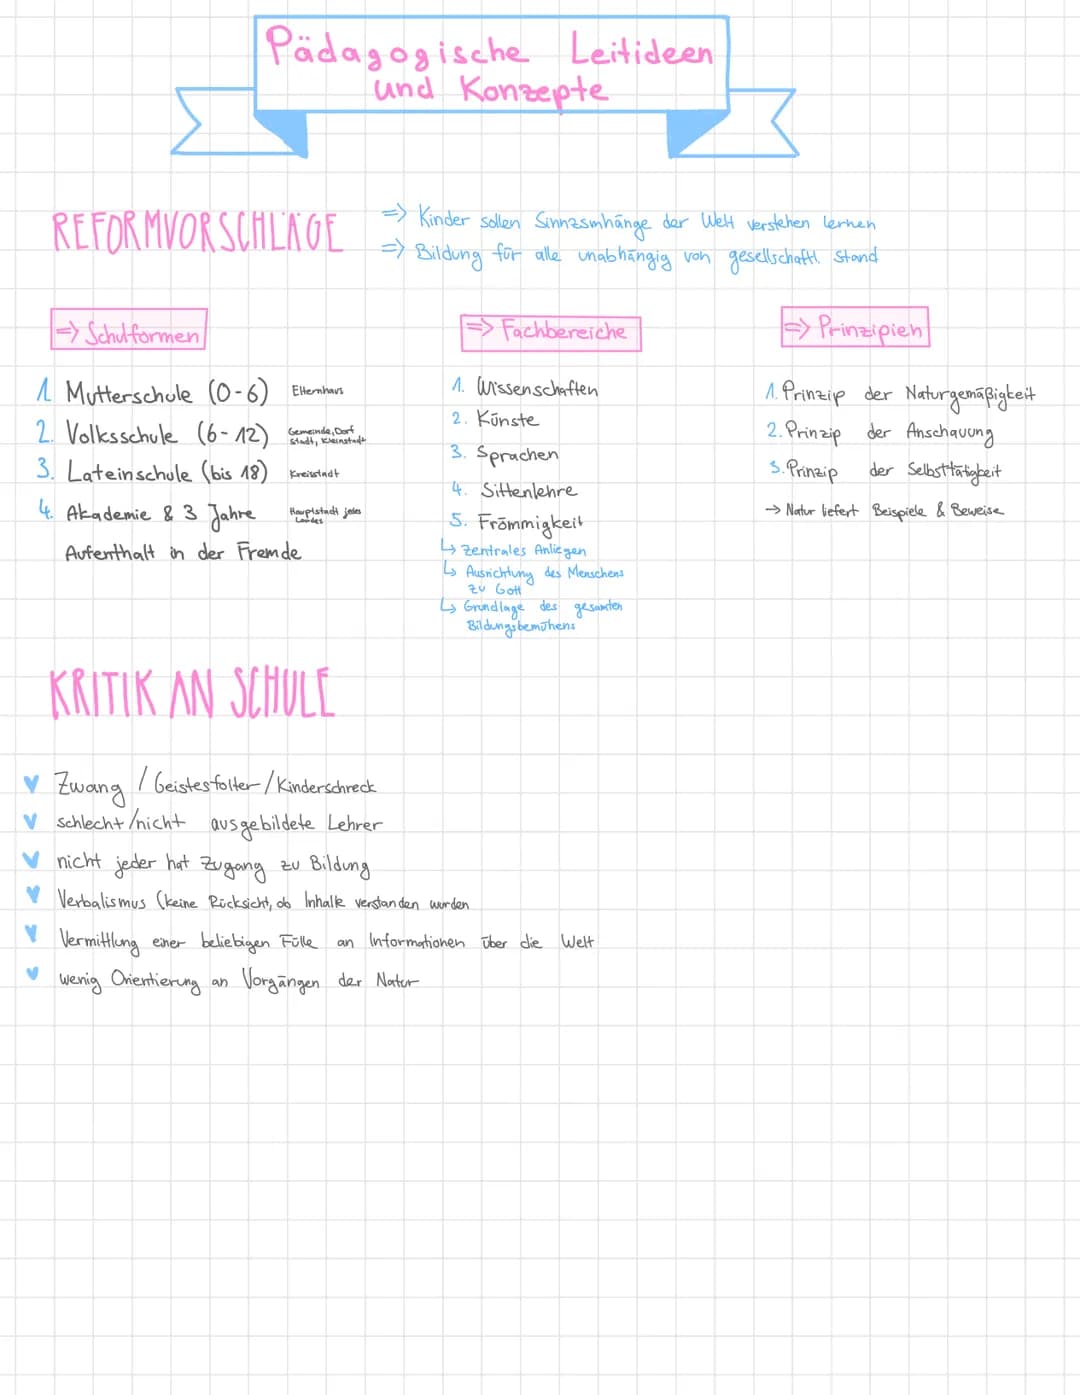 Pädagogische Leitideen
und Konzepte
REFORMVORSCHLÄGE
=> Kinder sollen Sinnzsmhänge der Welt verstehen lernen
=> Bildung für alle unabhängig von gesellschaftl. Stand
=> Schulformen
1. Mutterschule (0-6) Elternhaus
2. Volksschule (6-12) Gemeinde, Dorf
Stadt, Kleinstadt
3. Lateinschule (bis 18) Kreisstadt
4. Akademie & 3 Jahre Hauptstadt jedes
Landes
Aufenthalt in der Fremde
=> Fachbereiche
1. Wissenschaften
2. Künste
3. Sprachen
4. Sittenlehre
5. Frömmigkeit
↳ zentrales Anliegen
↳ Ausrichtung des Menschens
zu Gott
↳ Grundlage des gesamten
Bildungsbemühens
=> Prinzipien
1. Prinzip der Naturgemäßigkeit
2. Prinzip der Anschauung
3. Prinzip der Selbsttätigkeit
→ Natur liefert Beispiele & Beweise
KRITIK AN SCHULE
Zwang / Geistesfolter / Kinderschreck
schlecht/nicht ausgebildete Lehrer
nicht jeder hat Zugang zu Bildung
Verbalismus (keine Rücksicht, ob Inhalte verstanden wurden
Vermittlung einer beliebigen Fülle an Informationen über die Welt
wenig Orientierung an Vorgängen der Natur